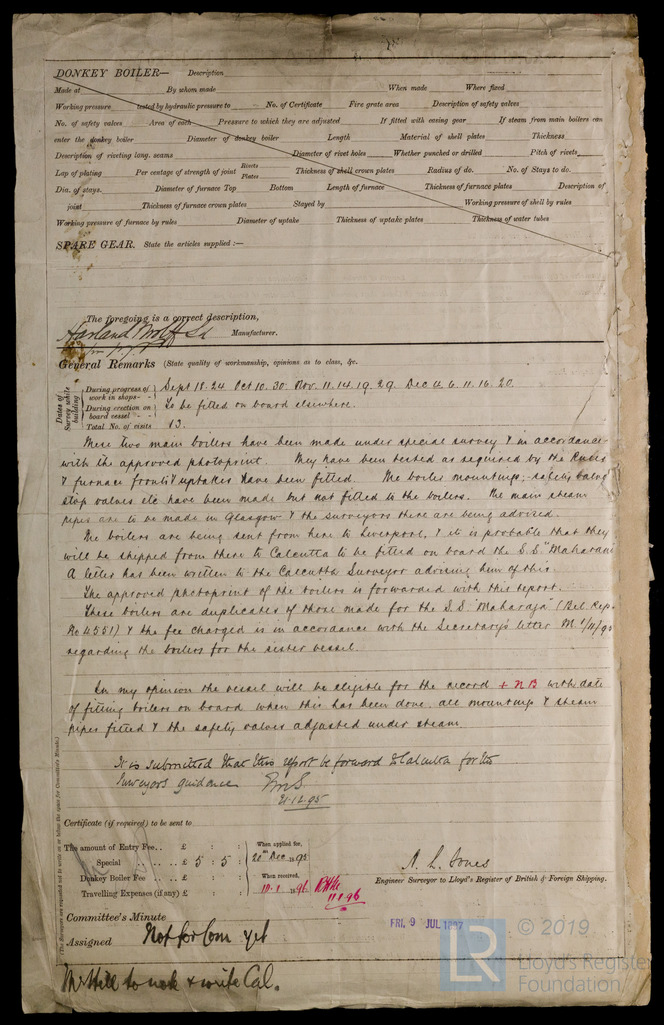 DONKEY BOILER— Description
Made at By whom made When made Where fixed
Working pressure tested by hydraulic pressure to No. of Certificate Fire grate area Description of safety valves
No. of safety valves Area of each Pressure to which they are adjusted If fitted with easing gear If steam from main boilers can
enter the donkey boiler Diameter of donkey boiler Length Material of shell plates Thickness
Description of riveting long. seams Diameter of rivet holes Whether punched or drilled Pitch of rivets
Lap of plating Per centage of strength of joint Rivets Plates Thickness of shell crown plates Radius of do. No. of Stays to do.
Dia. of stays. Diameter of furnace Top Bottom Length of furnace Thickness of furnace plates Description of
joint Thickness of furnace crown plates Stayed by Working pressure of shell by rules
Working pressure of furnace by rules Diameter of uptake Thickness of uptake plates Thickness of water tubes
SPARE GEAR. State the articles supplied :—
The foregoing is a correct description,
Harland Wolff Ld Manufacturer.
General Remarks (State quality of workmanship, opinions as to class, &c.
Dates of Survey while building
During progress of work in shops - - Sept 18. 24. Oct 10. 30. Nov. 11. 14. 19. 29. Dec 4. 6. 11. 16. 20.
During erection on board vessel - - To be fitted on board elsewhere.
Total No. of visits 13.
These two main boilers have been made under special survey & in accordance
with the approved photoprint. They have been tested as required by the Rules
& furnace fronts & uptakes have been fitted. The boiler mountings, safety valves
stop valves etc have been made but not fitted to the boilers. The main steam
pipes are to be made in Glasgow & the surveyors there are being advised.
The boilers are being sent from here to Liverpool, & it is probable that they
will be shipped from there to Calcutta to be fitted on board the S.S. "Maharani
A letter has been written to the Calcutta Surveyor advising him of this.
The approved photoprint of the boilers is forwarded with this report.
These boilers are duplicates of those made for the S.S "Maharaja" (Bel. Rep.
No 4551) & the fee charged is in accordance with the Secretary's letter M 1/11/95
regarding the boilers for the sister vessel.
In my opinion the vessel will be eligible for the record + NB with date
of fitting boilers on board when this has been done, all mountings & steam
pipes fitted & the safety valves adjusted under steam.
It is submitted that this report be forward to Calcutta for the
Surveyors guidance
21.12.95
Certificate (if required) to be sent to
The amount of Entry Fee.. £ : : When applied for,
Special .. .. £ 5 : 5 : 20th Dec 1895
Donkey Boiler Fee .. £ : : When received,
Travelling Expenses (if any) £ : : 10.1.1896 11.1.96
A. L. Jones
Engineer Surveyor to Lloyd's Register of British & Foreign Shipping.
Committee's Minute FRI. 9 JUL 1897
Assigned Not for Com yet
Mr Hill to note & write Cal.
(The Surveyors are requested not to write on or below the space for Committee's Minute.)
LR
© 2019
Lloyd's Register
Foundation.